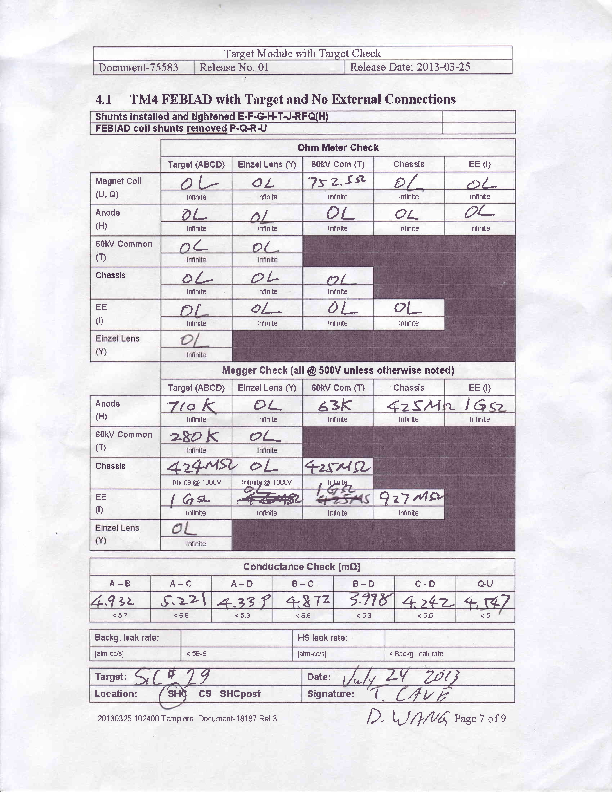 Target Module with Target Check
Document-75583 Release No. 01 Release Date: 2013-03-25
4.1 TM4 FEBIAD with Target and No External Connections
Shunts installed and tightened E-F-G-H-T-J-RFQ(H)
FEBIAD coil shunts removed P-Q-R-U
Ohm Meter Check
Target (ABCD) Einzel Lens (Y) 60kV Com (T) Chassis EE (I)
Magnet Coil OL OL 752.5Ω OL OL
(U, Q) Infinite Infinite Infinite Infinite Infinite
Anode OL OL OL OL OL
(H) Infinite Infinite Infinite Infinite Infinite
60kV Common OL OL
(T) Infinite Infinite
Chassis OL OL OL
Infinite Infinite Infinite
EE OL OL OL OL
(I) Infinite Infinite Infinite Infinite
Einzel Lens OL
(Y) Infinite
Megger Check (all @ 500V unless otherwise noted)
Target (ABCD) Einzel Lens (Y) 60kV Com (T) Chassis EE (I)
Anode 710K OL 63K 425MΩ 1GΩ
(H) Infinite Infinite Infinite Infinite Infinite
60kV Common 280K OL
(T) Infinite Infinite
Chassis 424MΩ OL 425MΩ
Infinite @ 1000V Infinite @ 1000V Infinite
EE 1GΩ OL 1GΩ 927MΩ
(I) Infinite Infinite Infinite Infinite
Einzel Lens OL
(Y) Infinite
Conductance Check [mΩ]
A – B A – C A – D B – C B – D C - D Q-U
4.932 5.221 4.339 4.872 3.998 4.242 4.547
Backg. leak rate: HS leak rate:
[atm-cc/s] [atm-cc/s] < Backg. leak rate
Target: SiC # 29 Date: July 24 2013
Location: SHC CS SHCpost Signature: T. CAVE
20130325 102400 Templers. Document-18187 Rel.3 D. WANG Page 7 of 9